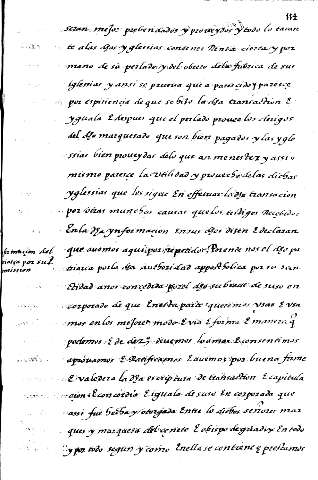 114
seran mejor probendados y proveydos y todo lo tocan
te a las dhas yglesias con tener Renta cierta y por
mano de su perlado y del obrero de la fabrica de sus
yglesias y ansi se prueva que a parescido y paresce
por espiriencia de que se hizo la dha transaction E
yguala E despues que el perlado provee los clerigos
del dho marquesado que son bien pagados y las ygle
ssias bien proveydas de lo que an menester y assi
mismo paresce la utilidad y provecho de las dichas
yglesias que los sigue En effetuar la dha transacion
por otras munchas causas que los testigos Recebidos
En la dha ynformacion Entre sus dhos dizen E declaran
que avemos aqui por Repetidos Por ende nos el dho pa
triarca por la dha authoridad appostholica por su san
ctidad anos concedida por el dho su breue de suso en
corporado de que En esta parte queremos vsar E vsa
mos en los mejores modo E via E forma E manera q̃
podemos E de derº devemos loamos E consentimos
aprovamos E Ratificamos E avemos por bueno firme
E valedera la dha escriptura de transaction E capitula
cion E concordia E yguala de suso En corporada que
assi fue hecha y otorgada Entre los dichos señores mar
ques y marquesa del çenete E obispo de guadix y En todo
y por todo segun y como En ella se contiene y prestamos